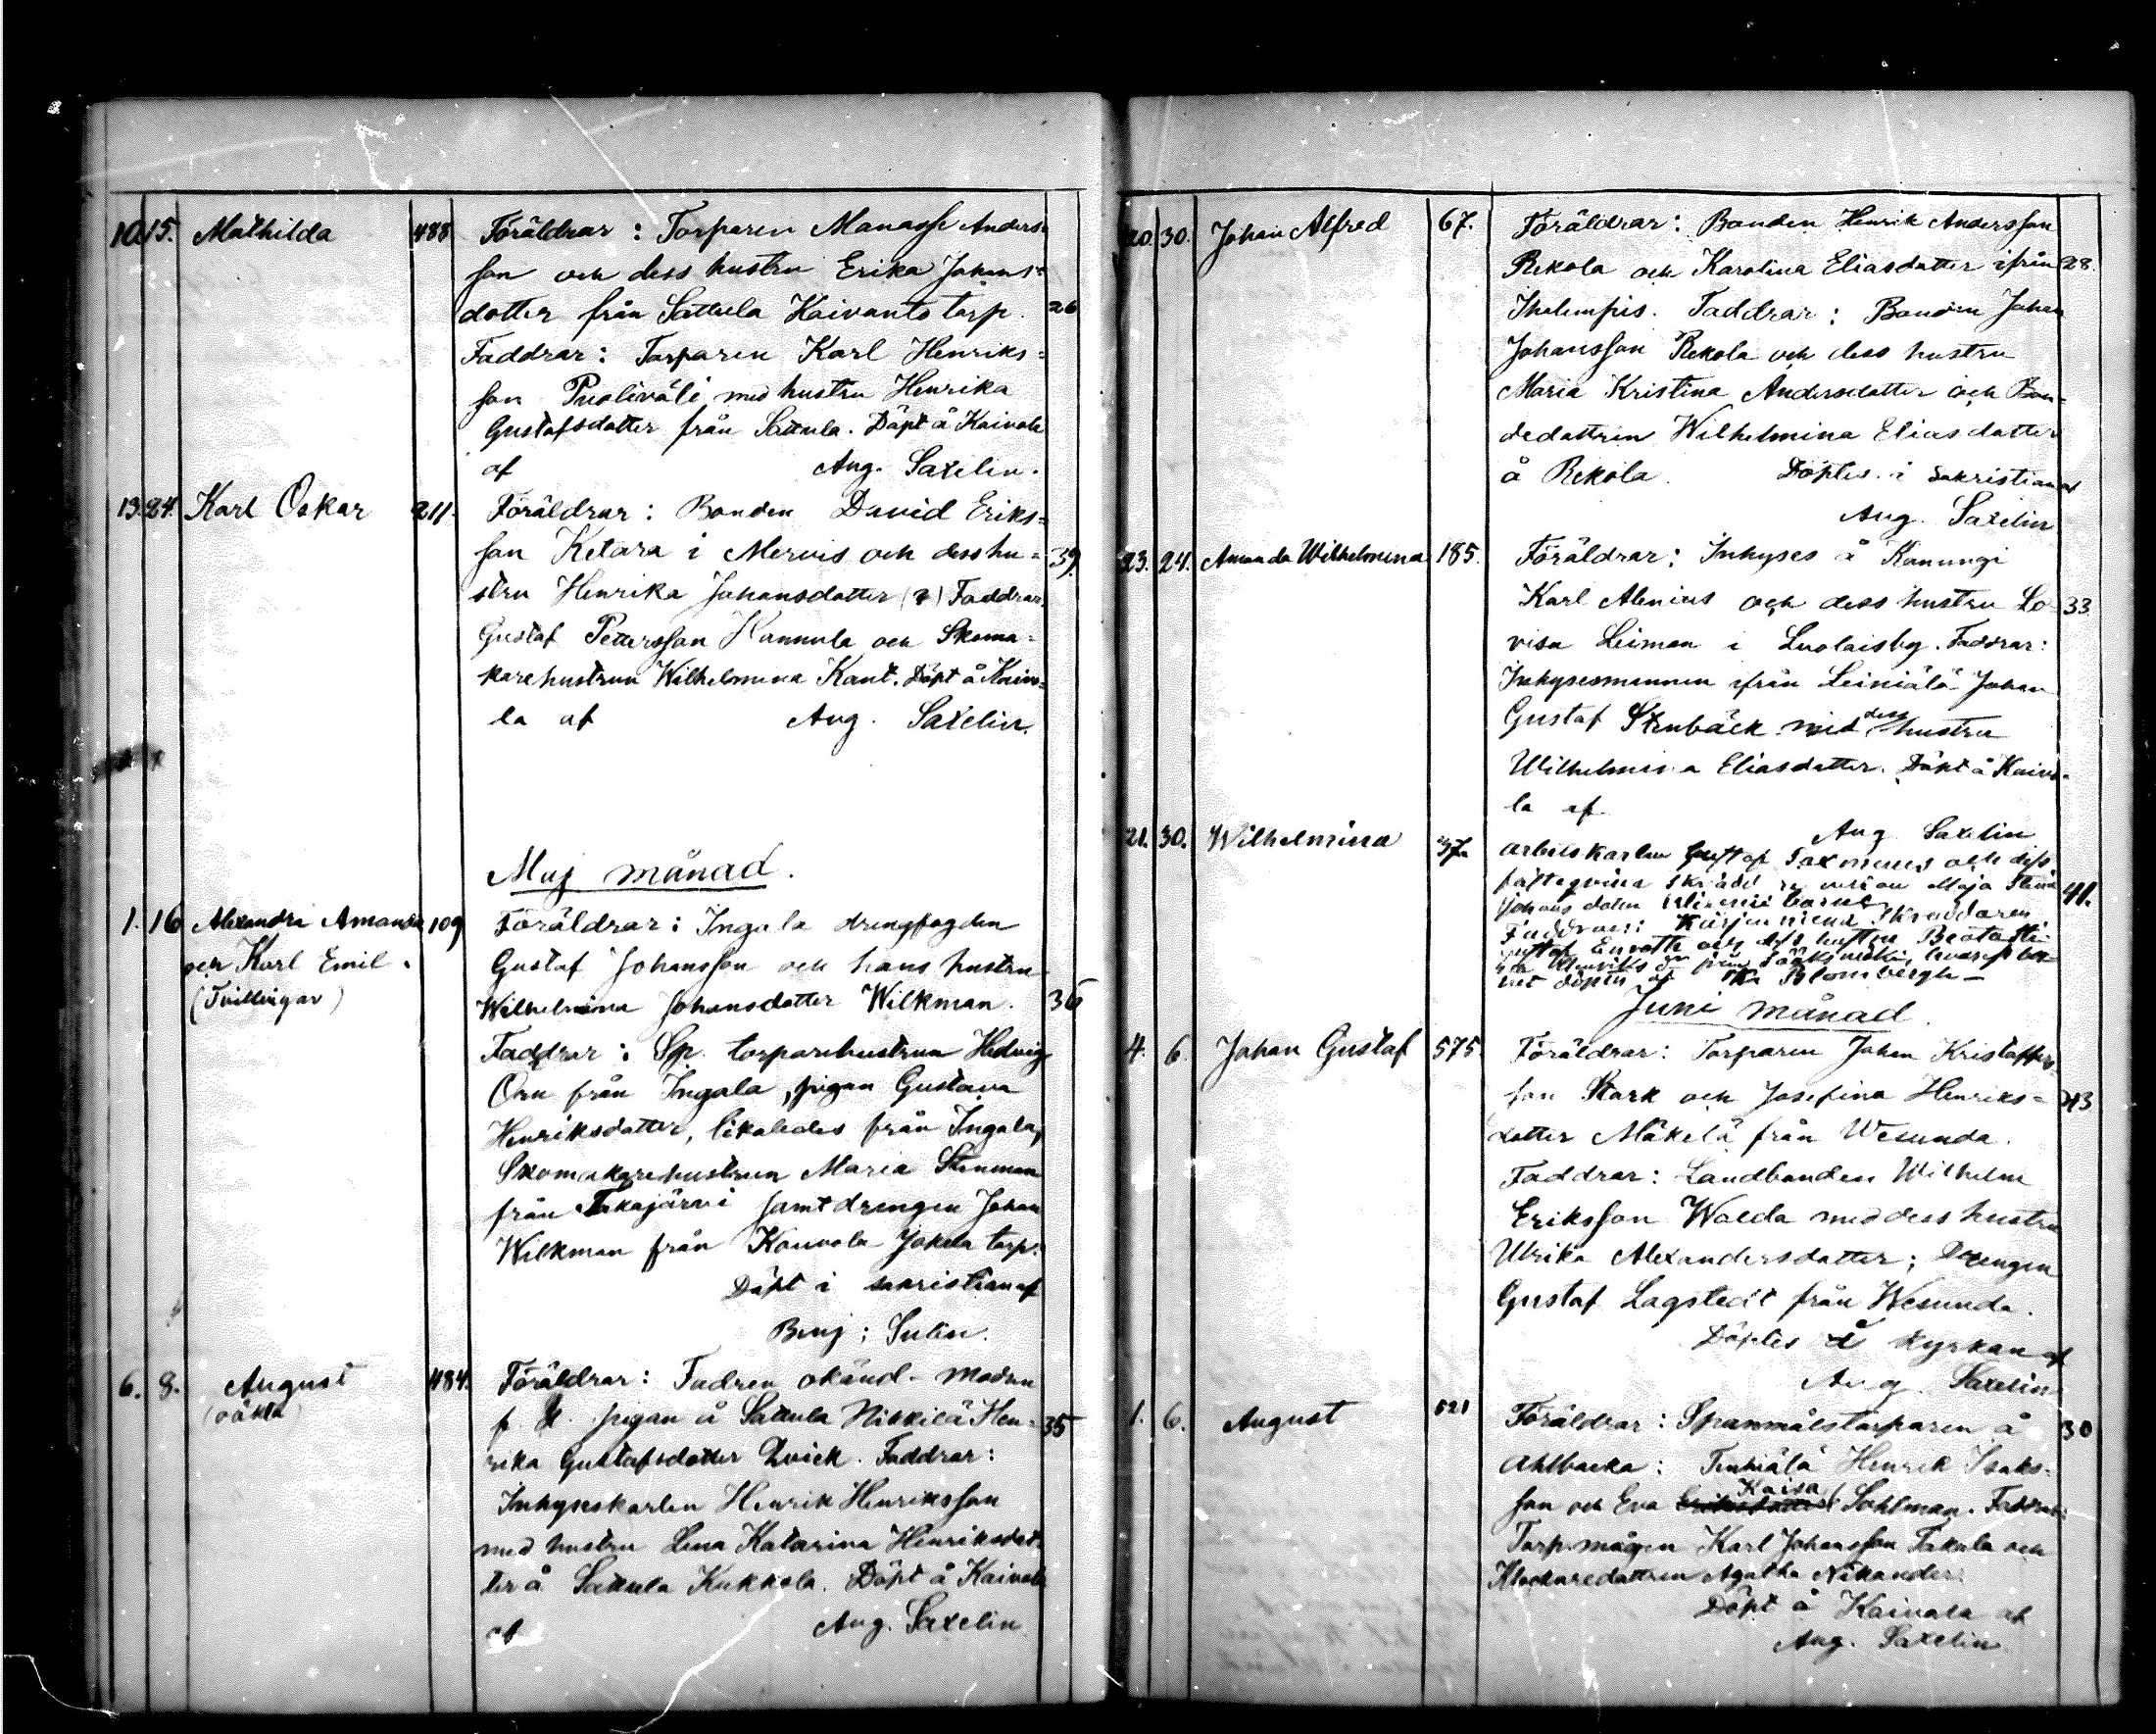 10. 15. Mathilda 488 Föräldrar: Torparen Manasse Anders-
son och dess hustru Erika Johans=
dotter från Sattula Kaivanto torp. 26
Faddrar: Torparen Karl Henriks=
son Puoliväli med hustru Henrika
Gustafsdotter från Sattula. Döpt å Kaivola
af Aug. Saxelin.
13. 24. Karl Oskar 211. Föräldrar: Bonden David Eriks=
son Ketara i Mervis och dess hu= 39.
stru Henrika Johansdotter Faddrar:
Gustaf Pettersson Hannula och Skoma=
karehustrun Wilhelmina Kant. Döpt å Kaivo=
la af Aug. Saxelin.
Maj månad.
1. 16 Alexandra Amanda 109 Föräldrar: Ingala drengfogden
och Karl Emil. Gustaf Johansson och hans hustru
(Tvillingar) Wilhelmina Johansdotter Wilkman. 36
Faddrar: Sp. torparehustrun Hedvig
Orn från Ingala, pigan Gustava
Henriksdotter, likaledes från Ingala,
Skomakarehustrun Maria Stenman
från Takajärvi samt drengen Johan
Wilkman från Kouvola Jokela torp.
Döpt i sakristian af
Benj: Sutin.
6. 8. August 484. Föräldrar: Fadren okänd. Modren
(oäkta) pigan å Sattula Hiekkilä Hen= 35
rika Gustafsdotter Qvick. Faddrar:
Inhyseskarlen Henrik Henriksson
med hustru Lena Katarina Henriksdot=
ter å Sattula Kukkola. Döpt å Kaivola
af Aug. Saxelin
20. 30. Johan Alfred 67. Föräldrar: Bonden Henrik Andersson
Rekola och Karolina Eliasdotter ifrån 28.
Ihalempis. Faddrar: Bonden Johan
Johansson Rekola och dess hustru
Maria Kristina Andersdotter och Bon=
dedottren Wilhelmina Eliasdotter
å Rekola. Döptes i sakristian af
Aug. Saxelin
23. 24. Amanda Wilhelmina 185. Föräldrar: Inhyses å Kanungi
Karl Alenius och dess hustru Lo= 33.
visa Leiman i Luolaisby. Faddrar:
Inhysesmannen ifrån Leiniälä Johan
Gustaf Stenbäck med dess hustru
Wilhelmina Eliasdotter. Döpt å Kaivo=
la af
Aug. Saxelin
21. 30. Wilhelmina 37. arbetskarlen Gustaf och dess
Maja Stina 41.
Johans dotter
Faddrar: Skräddaren
Gustaf och dess hustru
från
döptes af Blombergh
Juni månad
4. 6. Johan Gustaf 575. Föräldrar: Torparen Johan Kristoffers=
son Stark och Josefina Henriks= 43
dotter Mäkelä från Wesunda.
Faddrar: Landbonden Wilhelm
Eriksson Walda med dess hustru
Ulrika Alexandersdotter; Drengen
Gustaf Lagstedt från Wesunda.
Döptes i kyrkan af
Aug. Saxelin
1. 6. August 621 Föräldrar: Spanmålstorparen å 30
Ahlbacka: Henrik Isaks=
son och Eva Kaisa Sahlman. Faddrar:
Torp.mågen Karl Johansson Takala och
Klockaredottren Agatha Nikander.
Döpt å Kaivola af
Aug. Saxelin.